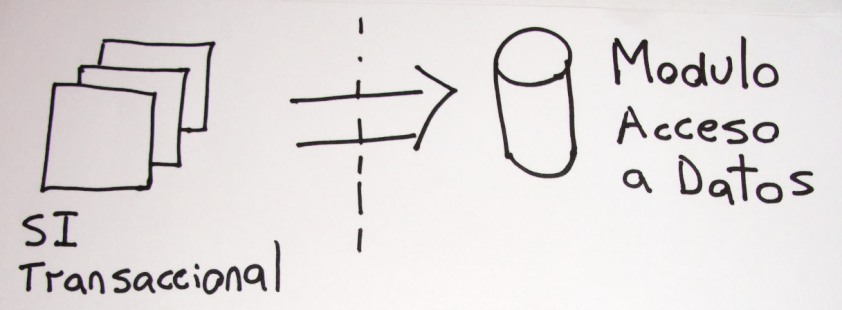 SI
Transaccional
Modulo
Acceso
a Datos